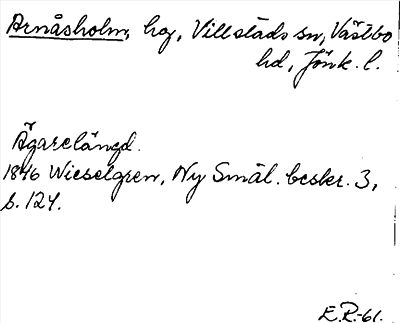 Arnåsholm, hg, Villstads sn, Västbo
hd, Jönk. l.
Ägarelängd.
1846 Wieselgren, Ny Smål. beskr. 3,
s. 124.
E.R.-61.